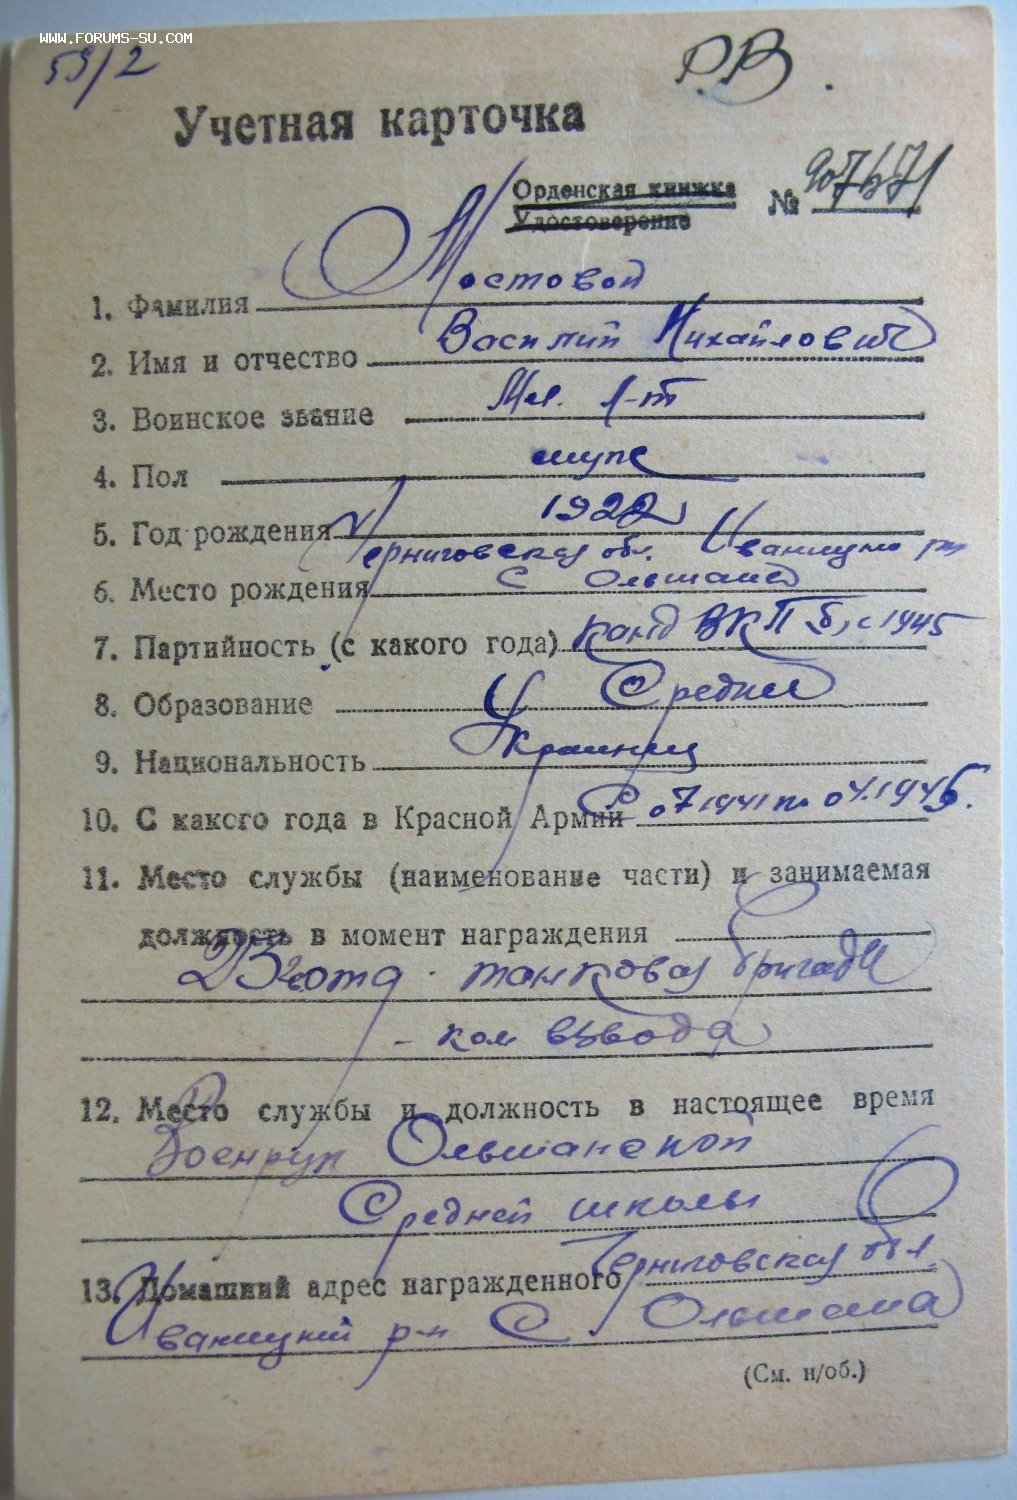 www.forums-su.com
59/2
Р.В.
Учетная карточка
Орденская книжка
Удостоверение
№
1. Фамилия Мостовой
2. Имя и отчество Василий Михайлович
3. Воинское звание Мл. л-т
4. Пол муж
5. Год рождения 1922
Черниговская обл. Иваницкий рн
6. Место рождения с Ольшана
7. Партийность (с какого года) канд ВКП б, с 1945
8. Образование Среднее
9. Национальность Украинец
10. С какого года в Красной Армии С 07 1941 по 04.1946.
11. Место службы (наименование части) и занимаемая
должность в момент награждения
танковая бригада
- ком взвода
12. Место службы и должность в настоящее время
Военрук Ольшанской
Средней школы
13. Домашний адрес награжденного Черниговская обл
Иваницкий р-н С. Ольшана
(См. н/об.)